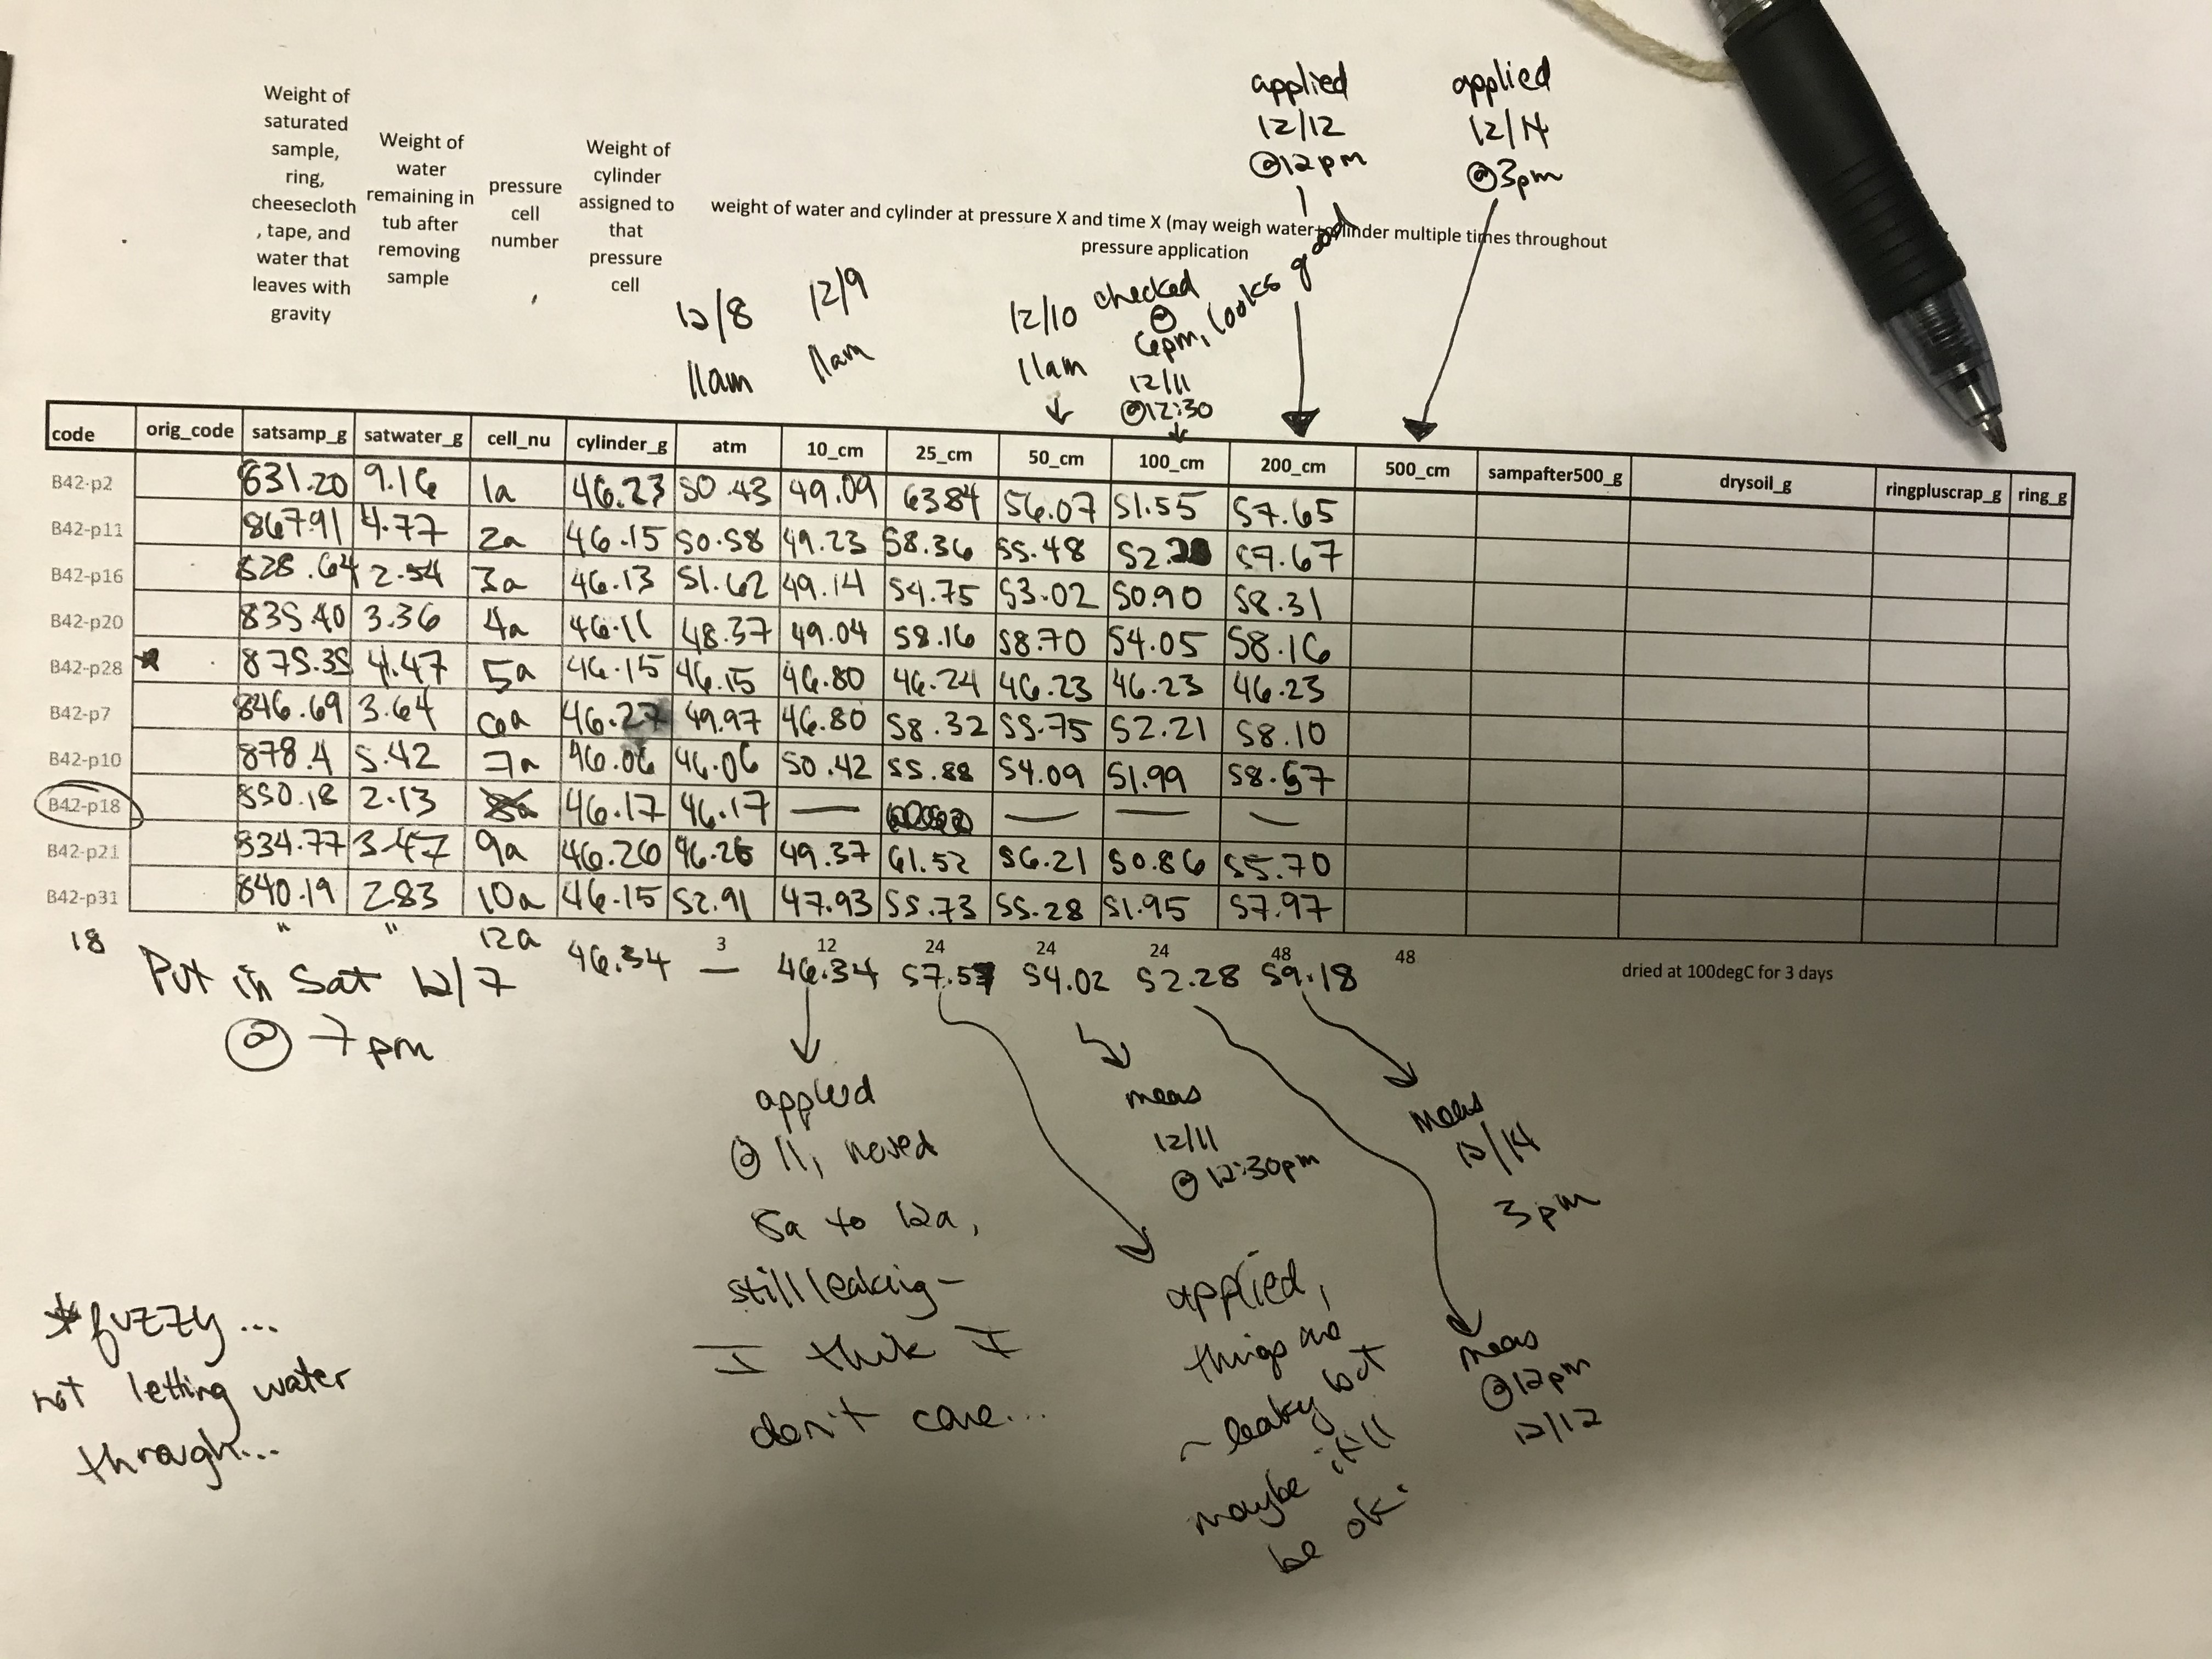 applied
12/12
@12pm
applied
12/14
@3pm
Weight of
saturated
sample,
ring,
cheesecloth
, tape, and
water that
leaves with
gravity
Weight of
water
remaining in
tub after
removing
sample
pressure
cell
number
Weight of
cylinder
assigned to
that
pressure
cell
weight of water and cylinder at pressure X and time X (may weigh water+cylinder multiple times throughout
pressure application
12/8
11am
12/9
11am
12/10
11am
checked
@
6pm, looks good
12/11
@12:30
code orig_code satsamp_g satwater_g cell_nu cylinder_g atm 10_cm 25_cm 50_cm 100_cm 200_cm 500_cm sampafter500_g drysoil_g ringpluscrap_g ring_g
B42-p2 831.20 9.16 1a 46.23 50.43 49.09 63.84 56.07 51.55 57.65
B42-p11 867.91 4.77 2a 46.15 50.58 49.23 58.36 55.48 57.67
B42-p16 828.64 2.54 3a 46.13 51.62 49.14 54.75 53.02 50.90 58.31
B42-p20 835.40 3.36 4a 46.11 48.37 49.04 58.16 58.70 54.05 58.16
B42-p28 * 875.35 4.47 5a 46.15 46.15 46.80 46.24 46.23 46.23 46.23
B42-p7 846.69 3.64 6a 46.27 49.97 46.80 58.32 55.75 52.21 58.10
B42-p10 878.4 5.42 7a 46.06 46.06 50.42 55.88 54.09 51.99 58.57
B42-p18 850.18 2.13 8a 46.17 46.17 — — — —
B42-p21 834.77 3.47 9a 46.26 46.26 49.37 61.52 56.21 50.86 55.70
B42-p31 840.19 2.83 10a 46.15 52.91 47.93 55.73 55.28 51.95 57.97
3 12 24 24 24 48 48
18 " " 12a 46.34 — 46.34 57.57 54.02 52.28 59.18
dried at 100degC for 3 days
Put in Sat 12/7
@ 7pm
applied
@ 11, moved
8a to 12a,
still leaking –
I think I
don't care...
meas
12/11
@ 12:30pm
meas
12/14
3pm
applied,
things are
~ leaky but
maybe it'll
be ok.
meas
@12pm
12/12
* fuzzy...
not letting water
through...